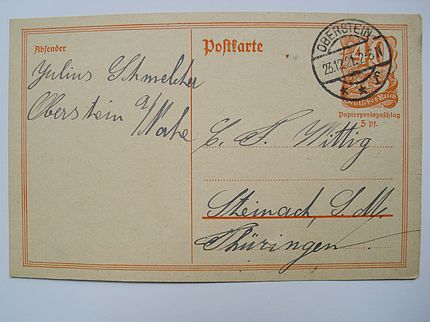 Absender
Postkarte
OBERSTEIN
23.12.21.2-3N
Deutsches Reich
Papierpreiszuschlag
5 Pf.
Julius Schmelcher
Oberstein a/
Nahe
C. S. Wittig
Steinach, S. M.
Thüringen